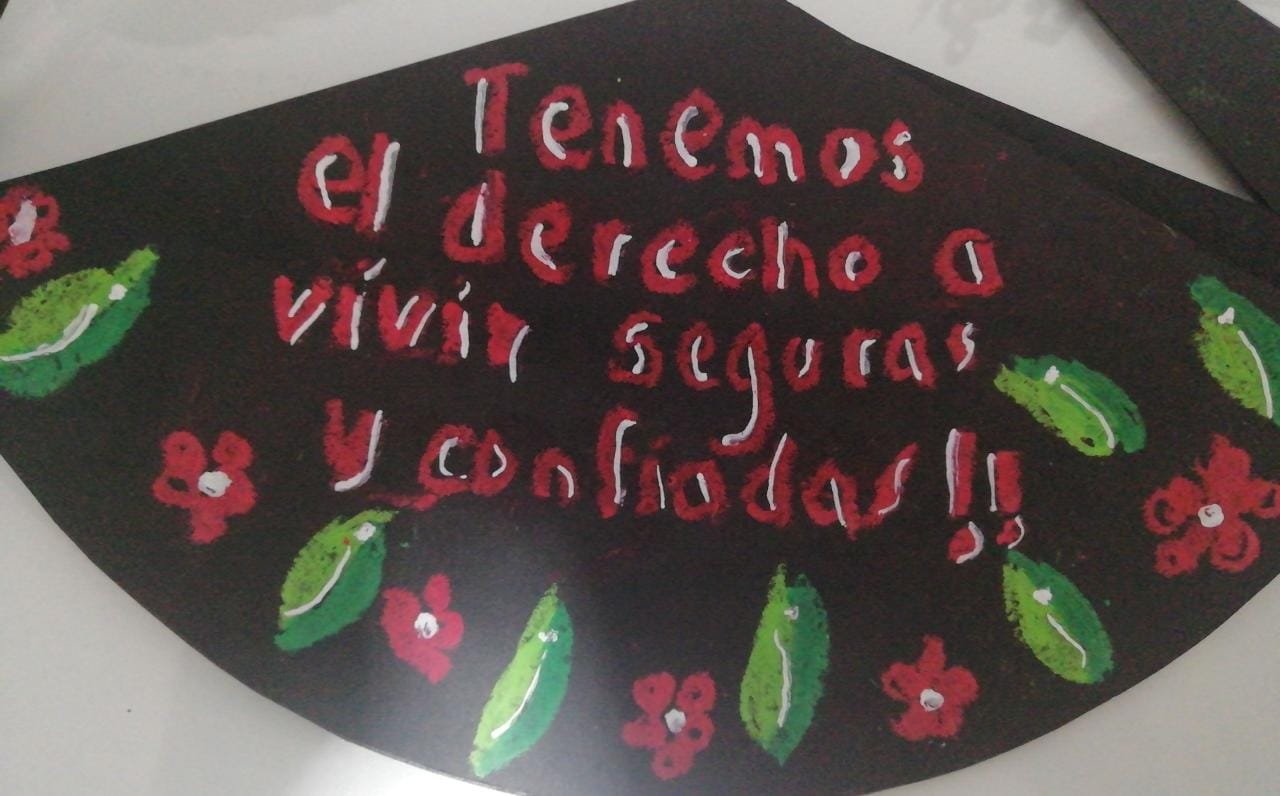 Tenemos
el derecho a
vívír seguras
y confiadas!!